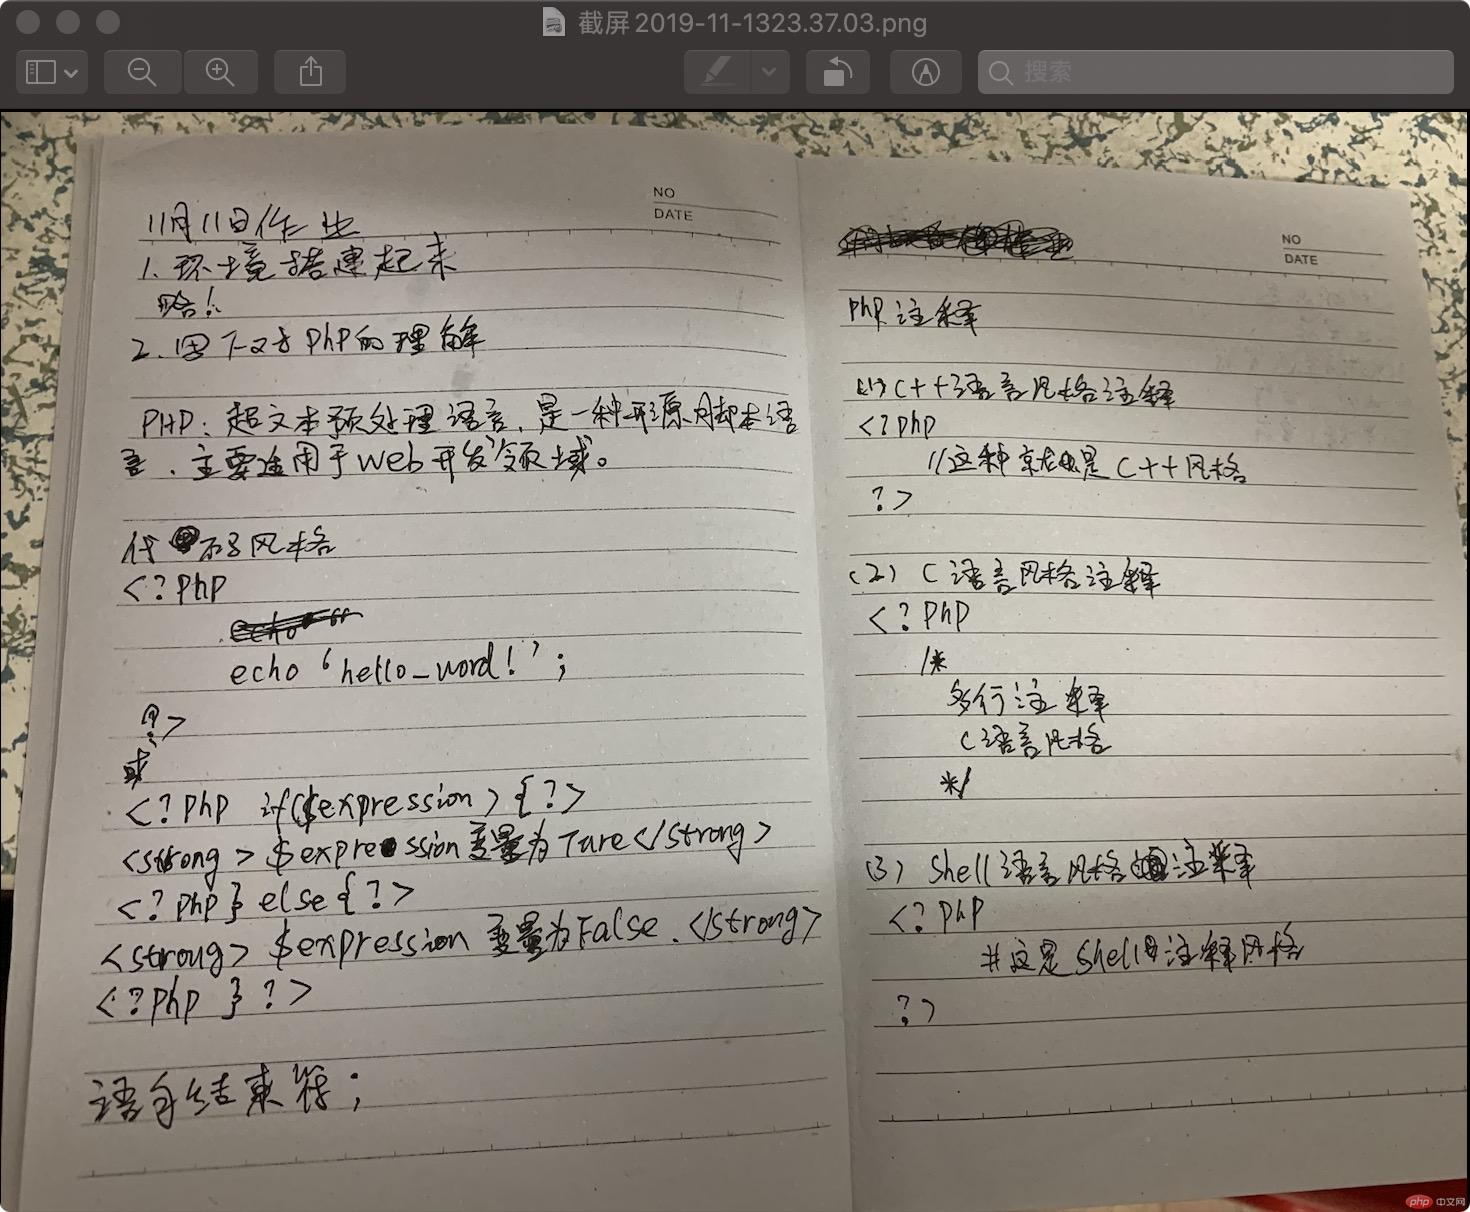 截屏2019-11-1323.37.03.png
搜索
NO
DATE
11月11日作业
1.环境搭建起来
略!
2.留下对php的理解
PHP:超文本预处理语言,是一种开源脚本语
言,主要适用于web开发领域。
代码风格
<?php
echo 'hello_word!';
?>
或
<?php if($expression){?>
<strong>$expression变量为Ture</strong>
<?php}else{?>
<strong>$expression变量为False.</strong>
<?php }?>
语句结束符;
NO
DATE
PhP注释
(1)C++语言风格注释
<?php
//这种就是C++风格
?>
(2) C语言风格注释
<?php
/*
多行注释
C语言风格
*/
(3) Shell语言风格注释
<?php
#这是Shell注释风格
?>
php 中文网